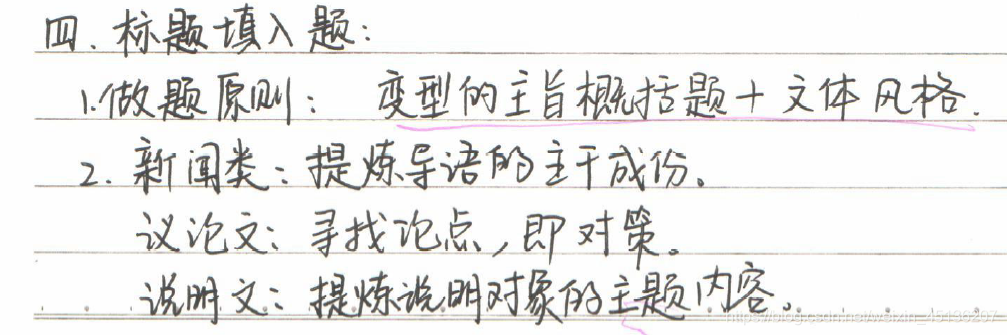 四. 标题填入题:
1.做题原则: 变型的主旨概括题+文体风格.
2. 新闻类: 提炼导语的主干成份。
议论文: 寻找论点,即对策。
说明文: 提炼说明对象的主题内容。
https://blog.csdn.net/weixin_45190207